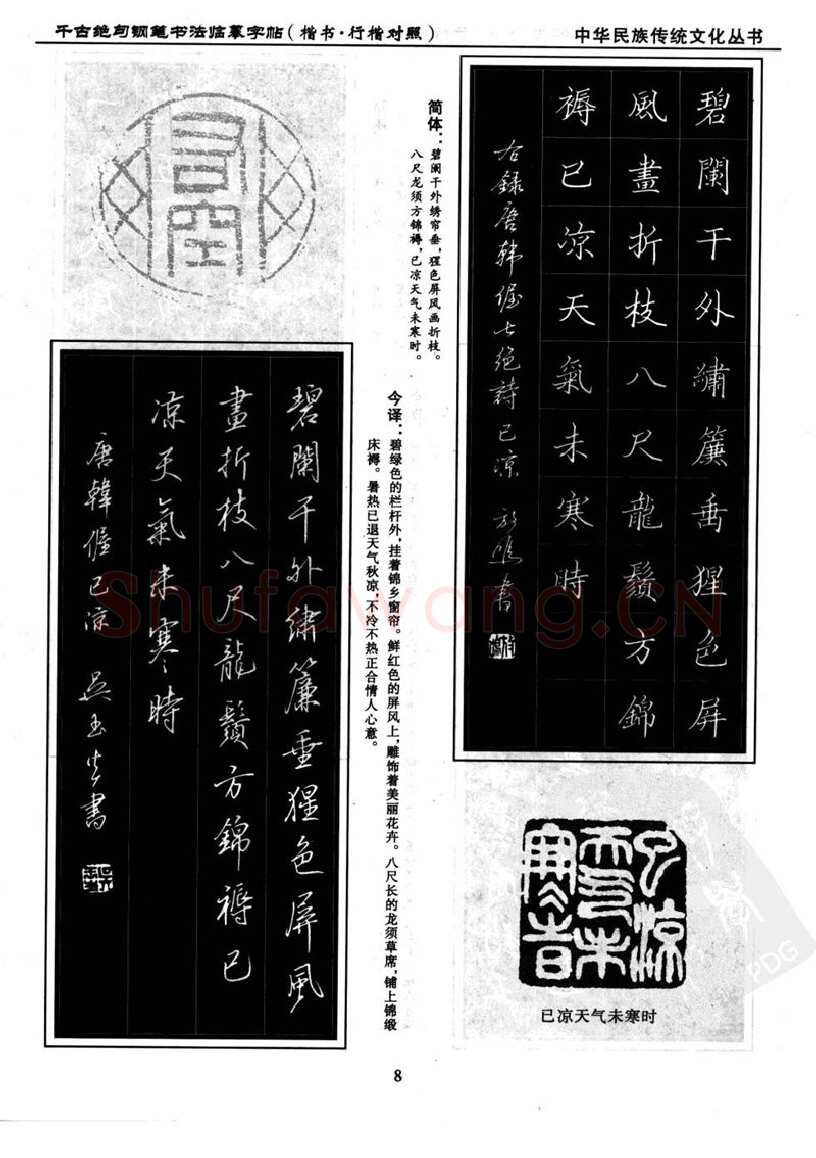 千古绝句钢笔书法临摹字帖(楷书·行楷对照)
中华民族传统文化丛书
碧闌干外繡簾垂猩色屏
風畫折枝八尺龍鬚方錦
褥已凉天氣未寒時
右録唐韓偓七绝詩已凉
書
简体:碧阑干外绣帘垂,猩色屏风画折枝。
八尺龙须方锦褥,已凉天气未寒时。
今译:碧绿色的栏杆外,挂着锦乡窗帘。鲜红色的屏风上,雕饰着美丽花卉。八尺长的龙须草席,铺上锦缎
床褥。暑热已退天气秋凉,不冷不热正合情人心意。
碧闌干外繡簾垂猩色屏風
畫折枝八尺龍鬚方錦褥已
凉天氣未寒時
唐韓偓已凉 吴玉生書
已凉天气未寒时
已凉天气未寒时
8
Shufawang.CN
PDG